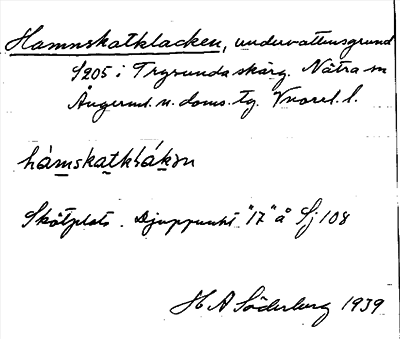 Hamnskatklacken, undervattensgrund
S205 i Trysunda skärg. Nätra sn
Ångerml. n. doms. tg. Vnorrl. l.
hàmskatklákən
Skötplats. Djuppunkt "17" å Sj 108
H A Söderberg 1939